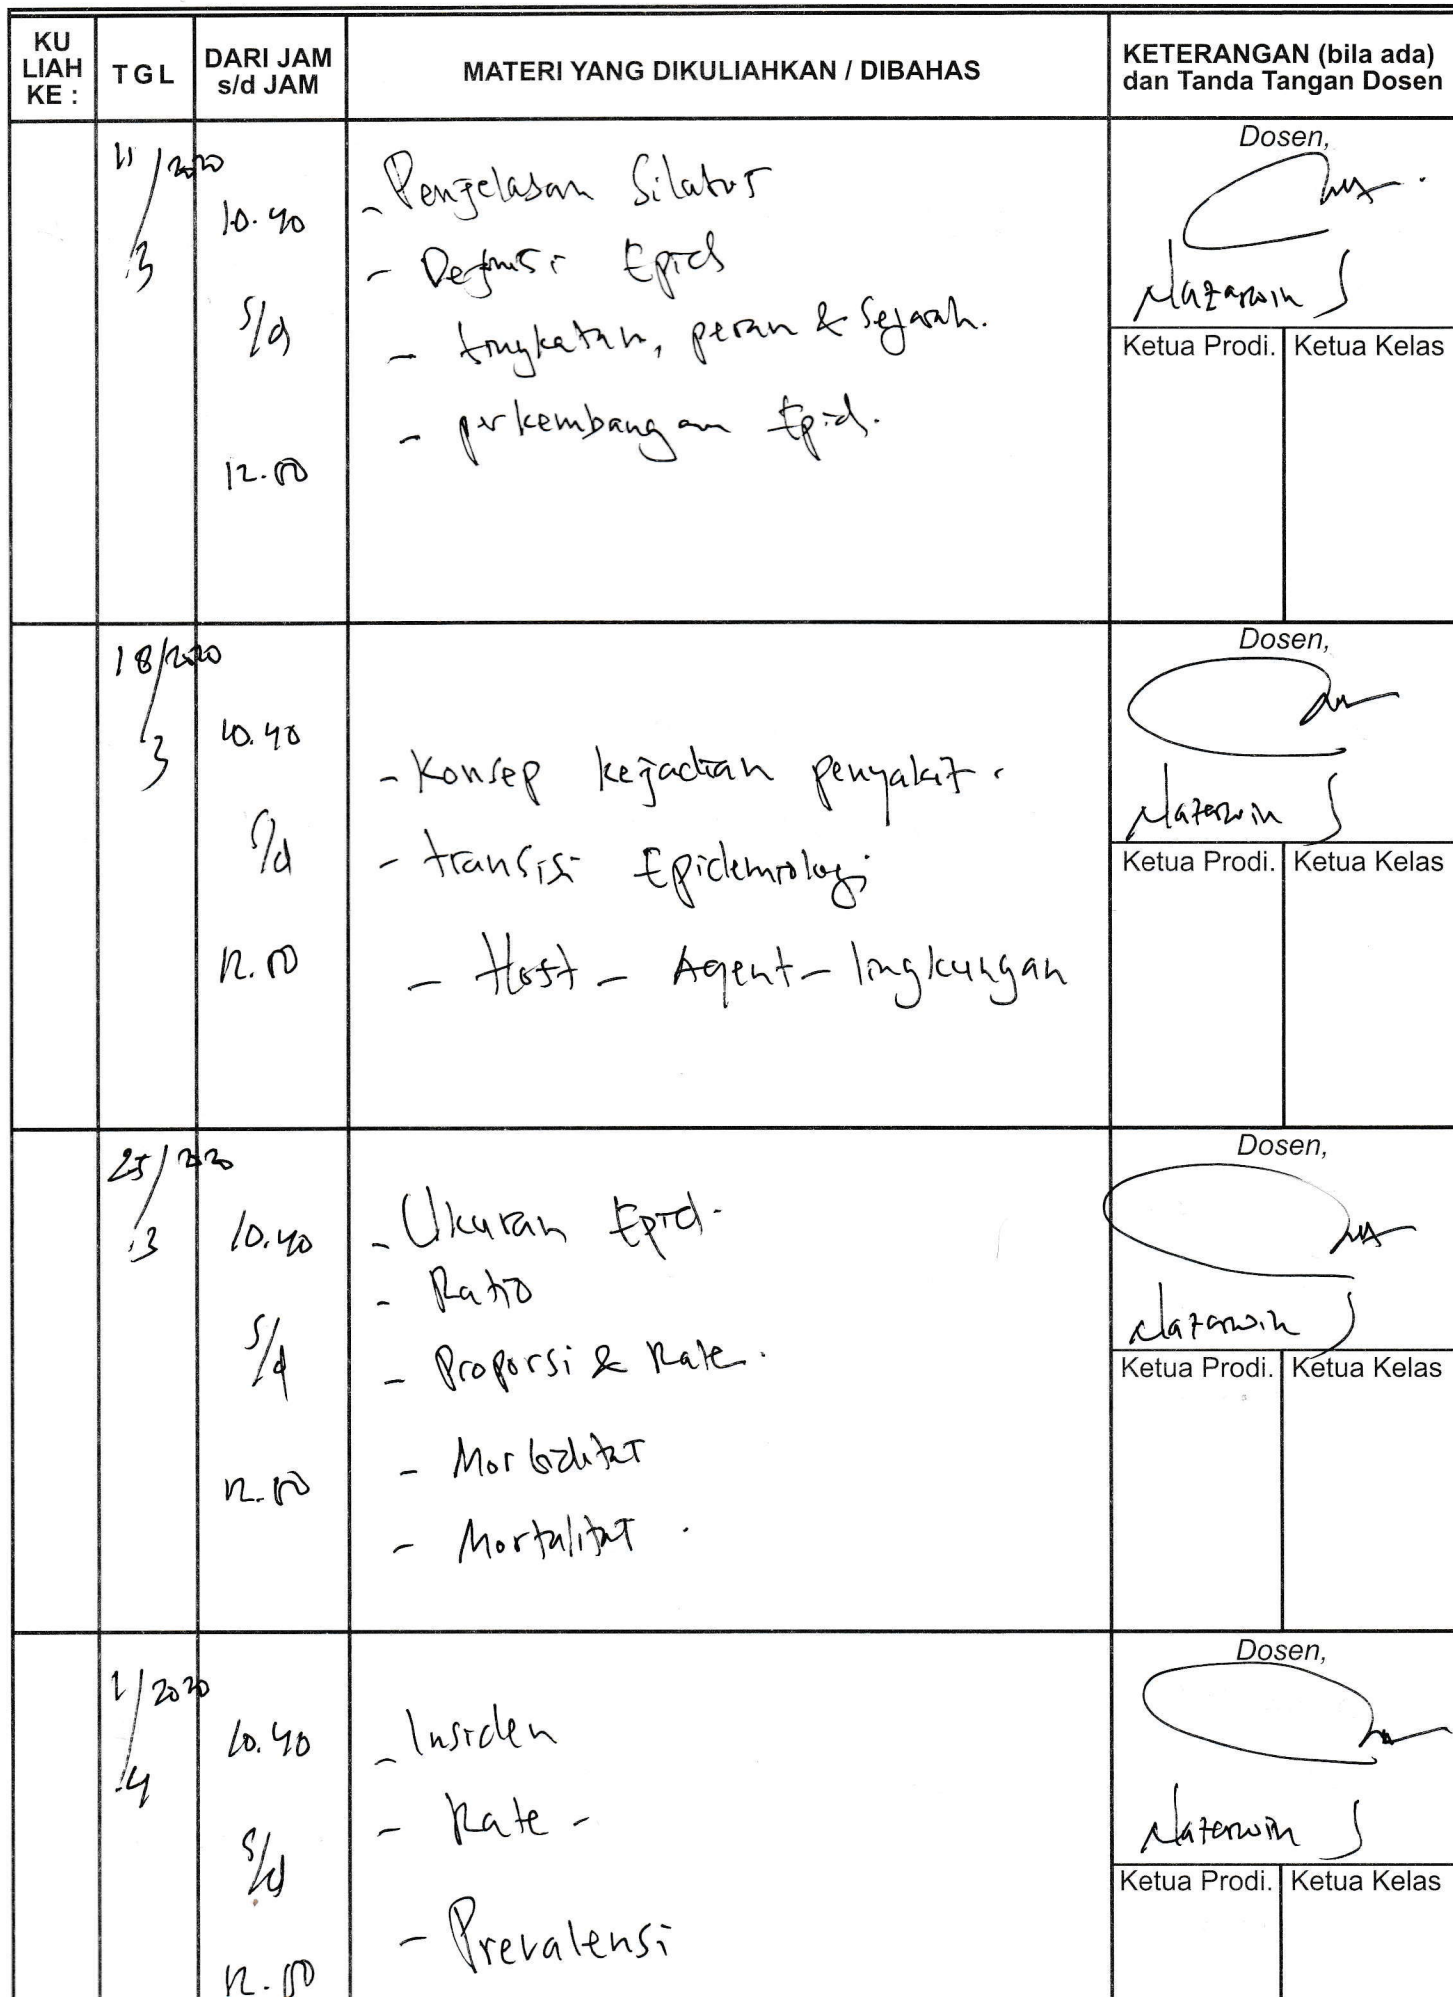 KU LIAH KE :
TGL
DARI JAM s/d JAM
MATERI YANG DIKULIAHKAN / DIBAHAS
KETERANGAN (bila ada) dan Tanda Tangan Dosen
11/2020
3
10.40
s/d
12.00
- Penjelasan Silabus
- Definisi Epid
- tingkatan, peran & Sejarah.
- perkembangan Epid.
Dosen,
Nazarwin S
Ketua Prodi. Ketua Kelas
18/2020
3
10.40
s/d
12.00
- Konsep kejadian penyakit.
- transisi Epidemiologi
- Host - Agent - lingkungan
Dosen,
Nazarwin S
Ketua Prodi. Ketua Kelas
25/2020
3
10.40
s/d
12.00
- Ukuran Epid.
- Ratio
- Proporsi & Rate.
- Morbiditas
- Mortalitas.
Dosen,
Nazarwin S
Ketua Prodi. Ketua Kelas
1/2020
4
10.40
s/d
12.00
- Insiden
- Rate -
- Prevalensi
Dosen,
Nazarwin S
Ketua Prodi. Ketua Kelas